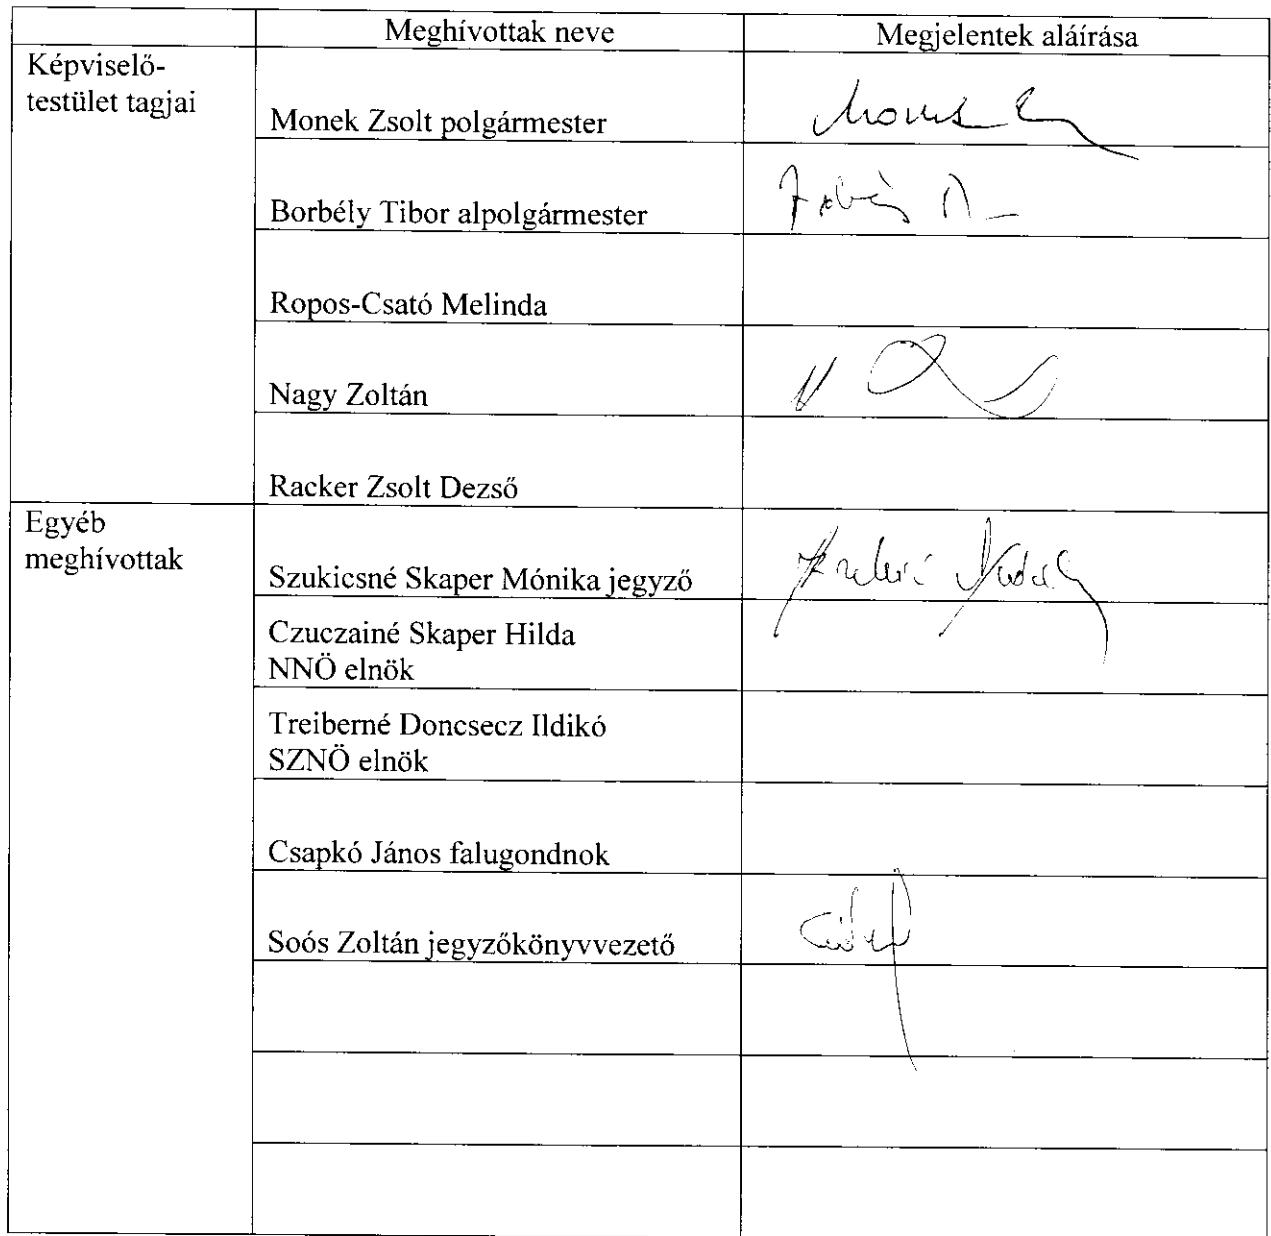 Meghívottak neve
Megjelentek aláírása
Képviselő-
testület tagjai
Monek Zsolt polgármester
Borbély Tibor alpolgármester
Ropos-Csató Melinda
Nagy Zoltán
Racker Zsolt Dezső
Egyéb
meghívottak
Szukicsné Skaper Mónika jegyző
Czuczainé Skaper Hilda
NNÖ elnök
Treiberné Doncsecz Ildikó
SZNÖ elnök
Csapkó János falugondnok
Soós Zoltán jegyzőkönyvvezető